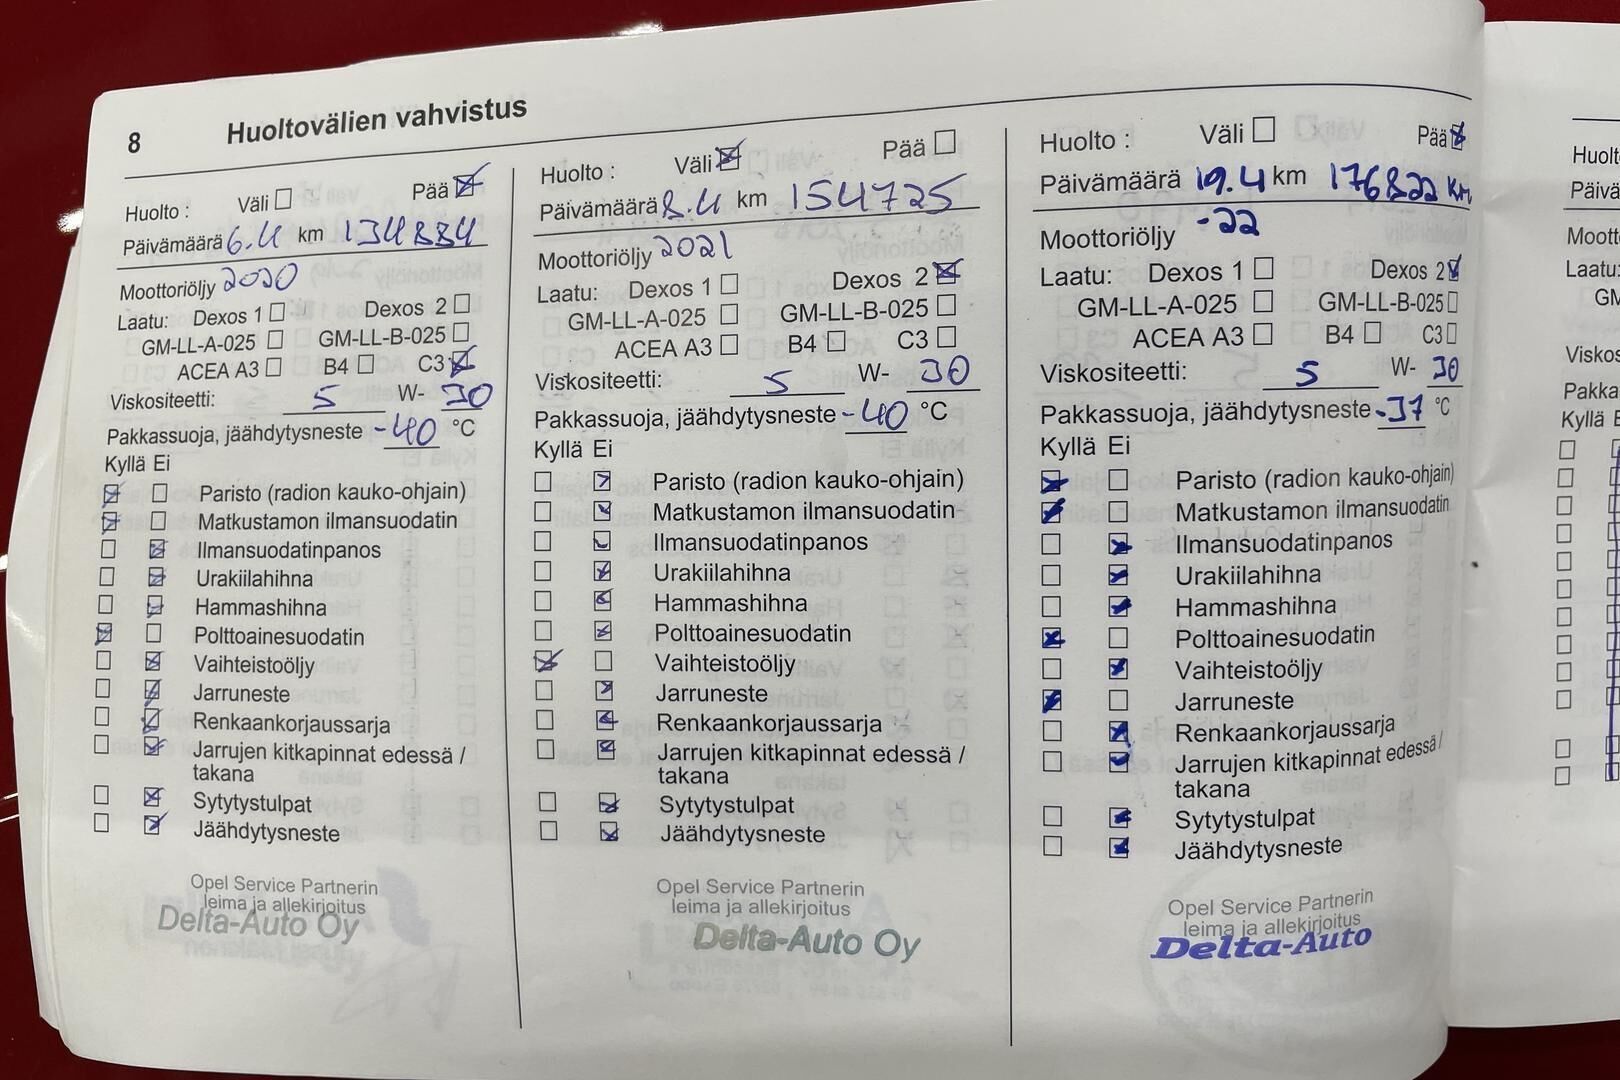 8 Huoltovälien vahvistus
Huolto : Väli Pää
Päivämäärä 6.4 km 134884
2020
Moottoriöljy
Laatu: Dexos 1 Dexos 2
GM-LL-A-025 GM-LL-B-025
ACEA A3 B4 C3
Viskositeetti: 5 W- 30
Pakkassuoja, jäähdytysneste -40 °C
Kyllä Ei
Paristo (radion kauko-ohjain)
Matkustamon ilmansuodatin
Ilmansuodatinpanos
Urakiilahihna
Hammashihna
Polttoainesuodatin
Vaihteistoöljy
Jarruneste
Renkaankorjaussarja
Jarrujen kitkapinnat edessä /
takana
Sytytystulpat
Jäähdytysneste
Opel Service Partnerin
leima ja allekirjoitus
Delta-Auto Oy
Huolto : Väli Pää
Päivämäärä 8.4 km 154725
Moottoriöljy 2021
Laatu: Dexos 1 Dexos 2
GM-LL-A-025 GM-LL-B-025
ACEA A3 B4 C3
Viskositeetti: 5 W- 30
Pakkassuoja, jäähdytysneste -40 °C
Kyllä Ei
Paristo (radion kauko-ohjain)
Matkustamon ilmansuodatin
Ilmansuodatinpanos
Urakiilahihna
Hammashihna
Polttoainesuodatin
Vaihteistoöljy
Jarruneste
Renkaankorjaussarja
Jarrujen kitkapinnat edessä /
takana
Sytytystulpat
Jäähdytysneste
Opel Service Partnerin
leima ja allekirjoitus
Delta-Auto Oy
Huolto : Väli Pää
Päivämäärä 19.4 km 176822 km
-22
Moottoriöljy
Laatu: Dexos 1 Dexos 2
GM-LL-A-025 GM-LL-B-025
ACEA A3 B4 C3
Viskositeetti: 5 W- 30
Pakkassuoja, jäähdytysneste -37 °C
Kyllä Ei
Paristo (radion kauko-ohjain)
Matkustamon ilmansuodatin
Ilmansuodatinpanos
Urakiilahihna
Hammashihna
Polttoainesuodatin
Vaihteistoöljy
Jarruneste
Renkaankorjaussarja
Jarrujen kitkapinnat edessä /
takana
Sytytystulpat
Jäähdytysneste
Opel Service Partnerin
leima ja allekirjoitus
Delta-Auto
Laatu:
GM
Kyllä